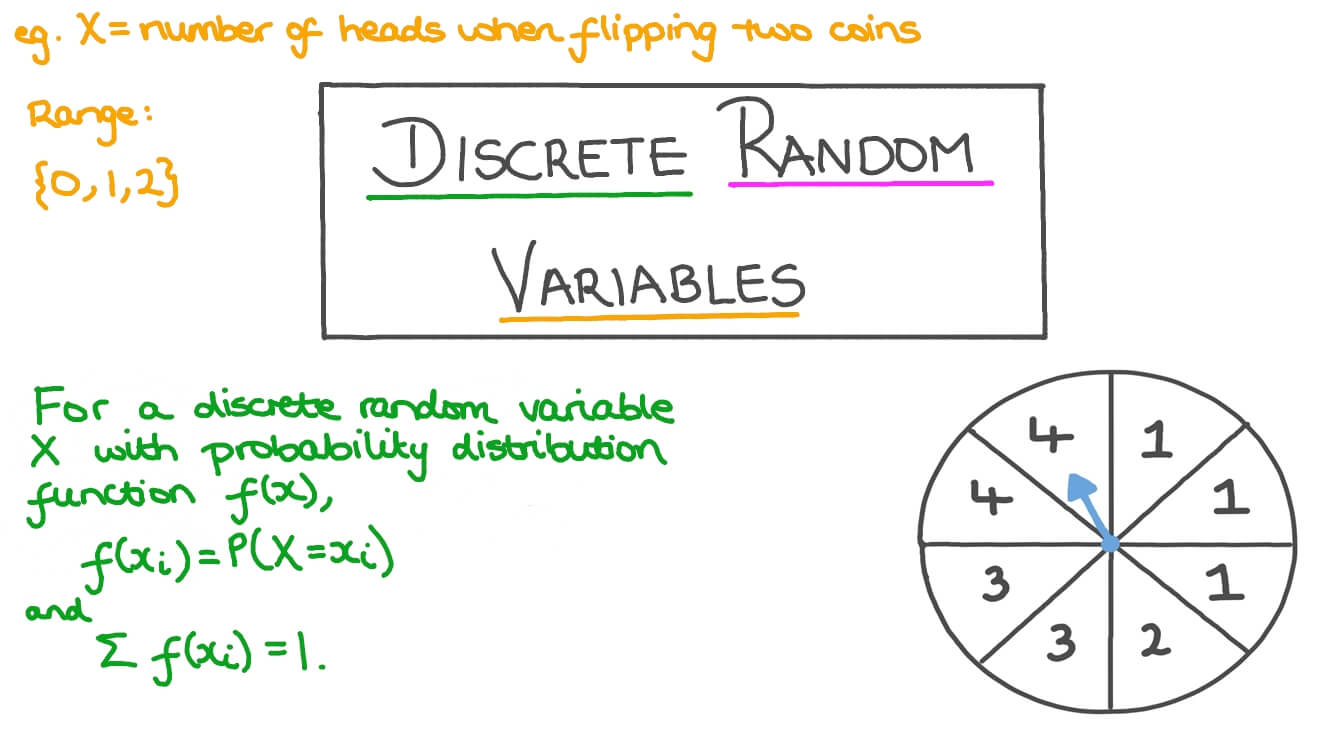 eg. X = number of heads when flipping two coins
Range:
{0,1,2}
DISCRETE RANDOM
VARIABLES
For a discrete random variable
X with probability distribution
function f(x),
f(xᵢ) = P(X=xᵢ)
and
Σ f(xᵢ) = 1.
4 1
4 1
3 1
3 2